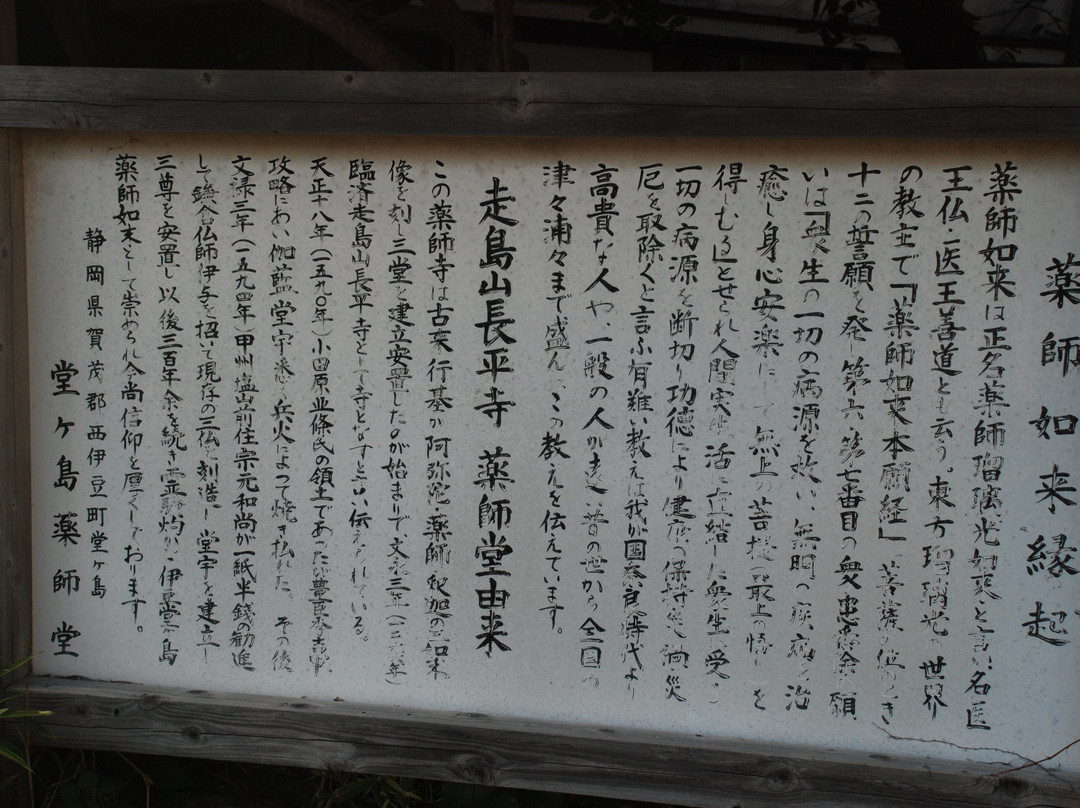 薬師如来縁起
薬師如来は正名薬師瑠璃光如来と言い名医
王仏・医王善道とも云う。東方瑠璃光の世界
の教主で「薬師如来本願経」菩薩の位のとき
十二の誓願を発し第六、第七番目の除願
いは「衆生の一切の病源を救い、無明の痼疾を治
癒し身心安楽にして無上の菩提(最上の悟り)を
得しむる」とせられ人間実生活に直結した衆生の受
一切の病源を断切り功徳により健康の保持災禍災
厄を取除くと言ふ有難い教えは我が国奈良時代より
高貴な人や、一般の人が遠い昔の世から全国の
津々浦々まで盛んにこの教えを伝えています。
走島山長平寺 薬師堂由来
この薬師寺は古来行基が阿弥陀、薬師、釈迦の三如来
像を刻し三堂を建立安置したのが始まりで、文永三年
臨済走島山長平寺として寺となすと言い伝えられている。
天正十八年(一五九〇年)小田原北條氏の領土であったが豊臣
攻略にあい伽藍堂宇悉く兵火によって焼き払われた。その後
文禄三年(一五九四年)甲州塩山前住宗元和尚が一紙半銭の勧進
して鎌倉仏師伊予を招いて現存の三仏を刻造し堂宇を建立し
三尊を安置し以後三百年余を続き霊験灼か、伊豆堂ヶ島
薬師如来として崇められ今尚信仰を厚くしております。
静岡県賀茂郡西伊豆町堂ヶ島
堂ヶ島薬師堂